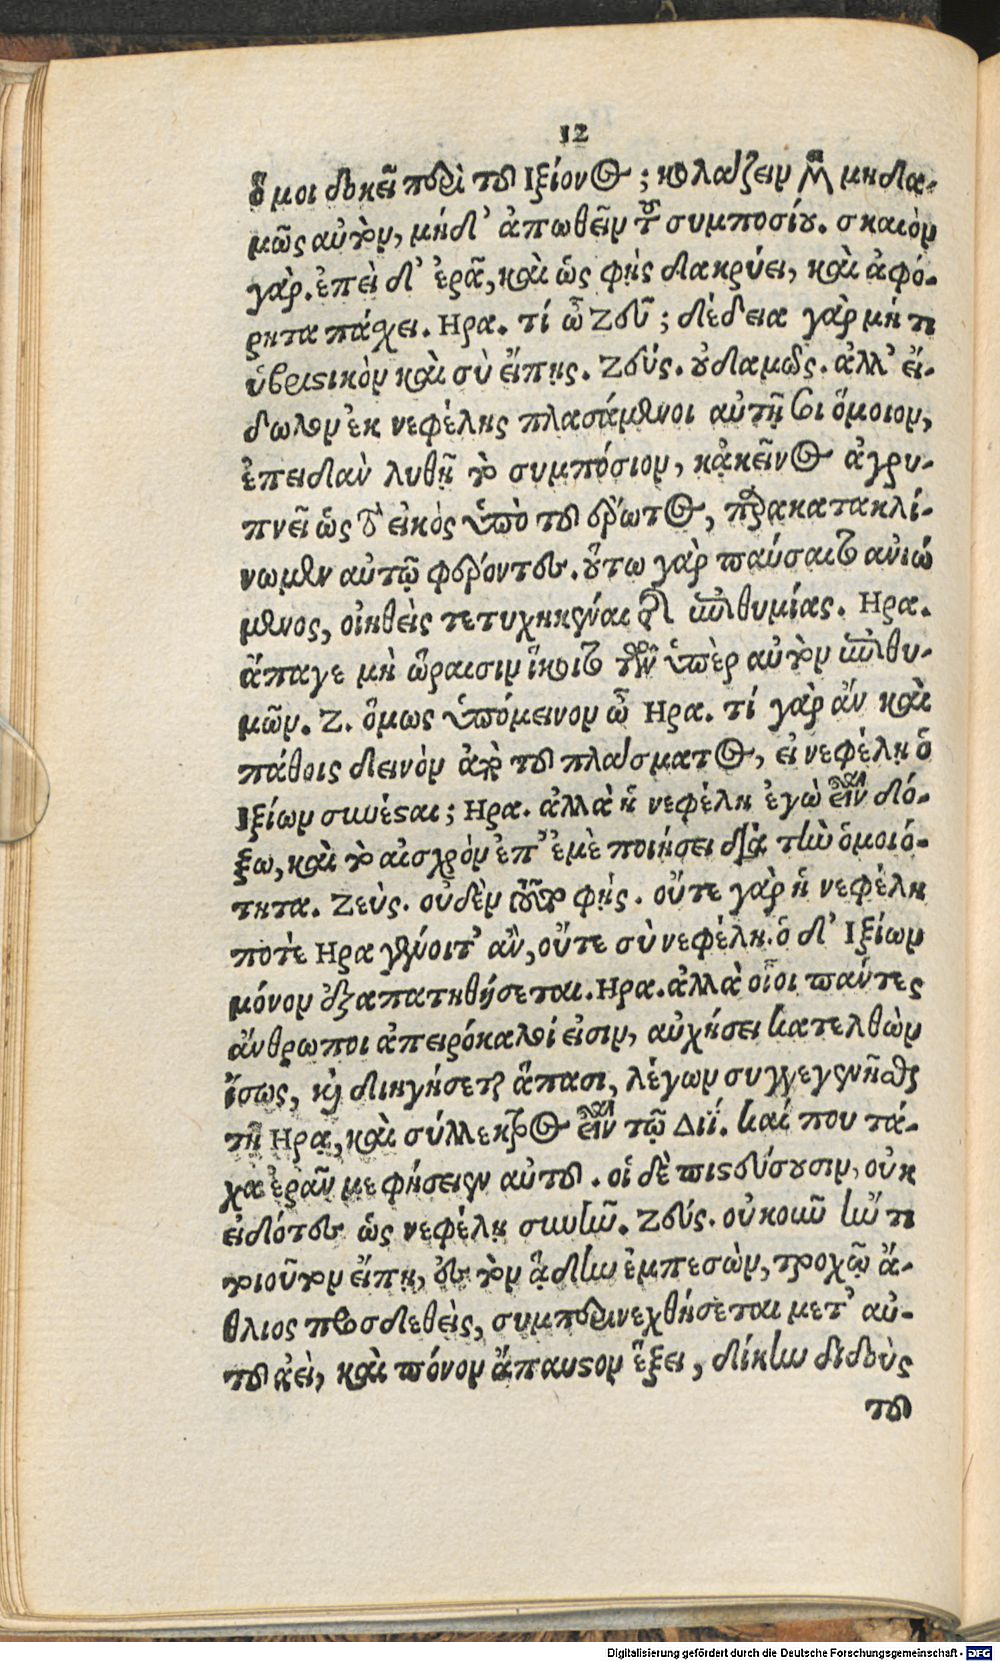 12
ὅ μοι δοκεῖ περὶ τοῦ Ιξίονος; κολάζειν μὲν μηδα-
μῶς αὐτὸν, μήδ' ἀπωθεῖν τοῦ συμποσίου. σκαιὸν
γάρ. ἐπεὶ δ' ἐρᾷ, καὶ ὡς φὴς δακρύει, καὶ ἀφό-
ρητα πάχει. Ηρα. τί ὦ Ζεῦ; δέδεια γὰρ μή τι
ὑβριστικὸν καὶ σὺ εἴπῃς. Ζεύς. οὐδαμῶς. ἀλλ' εἴ-
δωλον ἐκ νεφέλης πλασάμενοι αὐτῇ σοι ὅμοιον,
ἐπειδὰν λυθῇ τὸ συμπόσιον, κᾀκεῖνος ἀγρυ-
πνεῖ ὡς τὸ εἰκὸς ὑπὸ τοῦ ἔρωτος, παρακατακλί-
νωμεν αὐτῷ φέροντες. οὕτω γὰρ παύσαιτο ἀνιώ
μενος, οἰηθεὶς τετυχηκέναι τῆς ἐπιθυμίας. Ηρα.
ἄπαγε μὴ ὥραισιν ἵκοιτο τῶν ὑπὲρ αὐτὸν ἐπιθυ-
μῶν. Ζ. ὅμως ὑπόμεινον ὦ Ηρα. τί γὰρ ἄν καὶ
πάθοις δεινὸν ἀπὸ τοῦ πλάσματος, εἰ νεφέλῃ ὁ
Ιξίων συνέσται; Ηρα. ἀλλὰ ἡ νεφέλη ἐγὼ εἶναι δό-
ξω, καὶ τὸ αἰσχρὸν ἐπ' ἐμὲ ποιήσει διὰ τὴν ὁμοιό-
τητα. Ζεὺς. οὐδὲν τοῦτο φῄς. οὔτε γὰρ ἡ νεφέλη
ποτὲ Ηρα γένοιτ' ἂν, οὔτε σὺ νεφέλη. ὁ δ' Ιξίων
μόνον ἐξαπατηθήσεται. Ηρα. ἀλλὰ οἷοι πάντες
ἄνθρωποι ἀπειρόκαλοί εἰσιν, αὐχήσει κατελθὼν
ἴσως, καὶ διηγήσεται ἅπασι, λέγων συγγεγενῆσθαι
τῇ Ηρᾳ, καὶ σύλλεκτρος εἶναι τῷ Διΐ. καί που τά-
χα ἐρᾶν με φήσειεν αὐτοῦ. οἱ δὲ πιστεύσουσιν, οὐκ
εἰδότες ὡς νεφέλῃ συνῆν. Ζεύς. οὐκοῦν ἤν τι
τοιοῦτον εἴπῃ, ἐς τὸν ᾅδην ἐμπεσὼν, τροχῷ ἄ-
θλιος προσδεθεὶς, συμπεριενεχθήσεται μετ' αὐ-
τοῦ ἀεὶ, καὶ πόνον ἄπαυστον ἕξει, δίκην διδοὺς
τοῦ
Digitalisierung gefördert durch die Deutsche Forschungsgemeinschaft - DFG